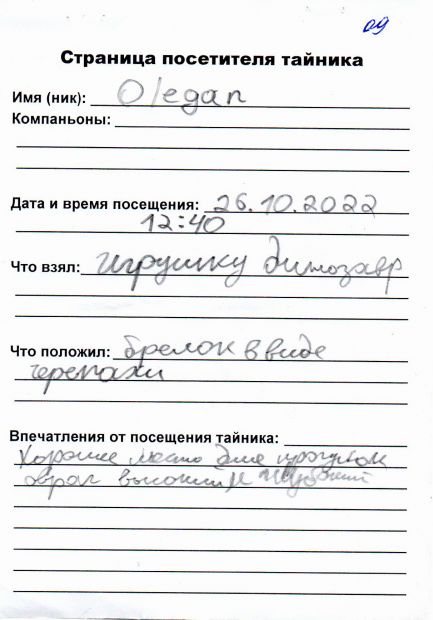 09
Страница посетителя тайника
Имя (ник): Olegan
Компаньоны:
Дата и время посещения: 26.10.2022
12:40
Что взял: игрушку динозавр
Что положил: брелок в виде
черепахи
Впечатления от посещения тайника:
Хорошее место для прогулок
овраг высокий и глубокий